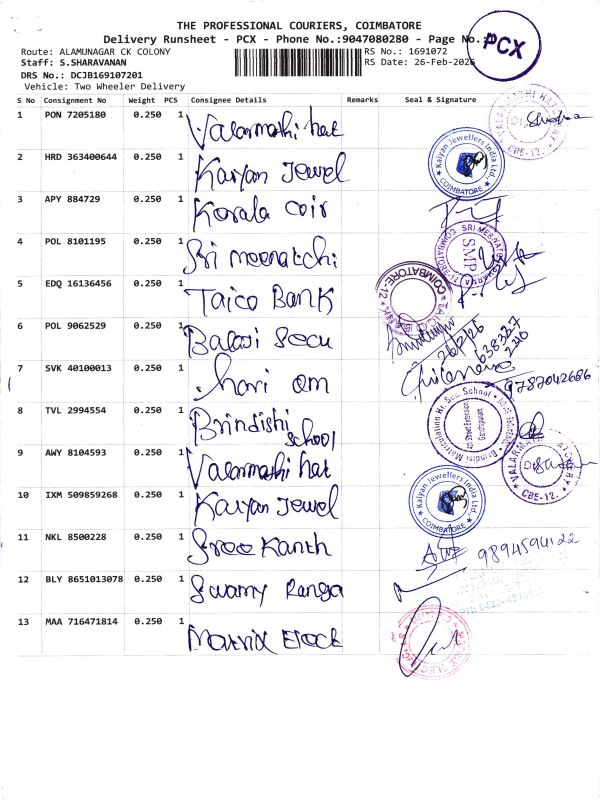 THE PROFESSIONAL COURIERS, COIMBATORE
Delivery Runsheet - PCX - Phone No.:9047080280 - Page No.:
PCX
Route: ALAMUNAGAR CK COLONY
RS No.: 1691072
Staff: S.SHARAVANAN
RS Date: 26-Feb-2026
DRS No.: DCJB169107201
Vehicle: Two Wheeler Delivery
S No Consignment No Weight PCS Consignee Details Remarks Seal & Signature
1 PON 7205180 0.250 1 Valarmathi hat
2 HRD 363400644 0.250 1 Kalyan Jewel
Kalyan Jewellers India Ltd. COIMBATORE
3 APY 884729 0.250 1 Kerala coir
4 POL 8101195 0.250 1 Sri meenatchi
SMP
5 EDQ 16136456 0.250 1 Taico Bank
COIMBATORE-12
6 POL 9062529 0.250 1 Balaji Secu
26/2/26
7 SVK 40100013 0.250 1 hari om
9787042686
8 TVL 2994554 0.250 1 Brindishi School
Matriculation Hr. Sec. School
9 AWY 8104593 0.250 1 Valarmathi hat
VALARMATHI HATCHERY CBE-12.
10 IXM 509859268 0.250 1 Kalyan Jewel
Kalyan Jewellers India Ltd. COIMBATORE
11 NKL 8500228 0.250 1 Sree Kanth
9894594122
12 BLY 8651013078 0.250 1 Swamy Ranga
13 MAA 716471814 0.250 1 Matrix Elock